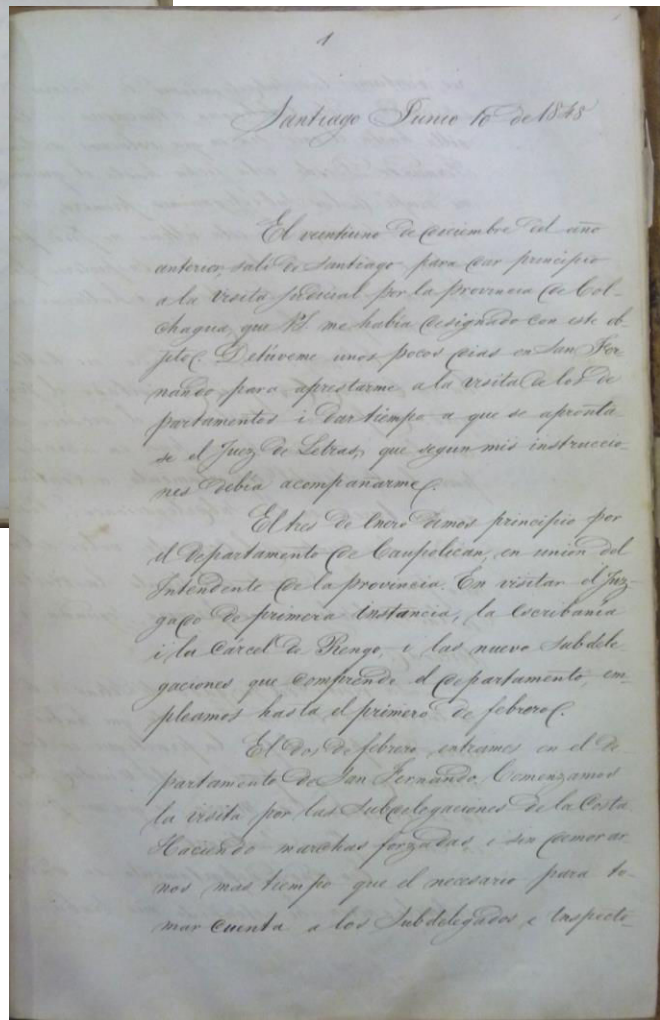 1
Santiago Junio 10 de 1848
El veintiuno de diciembre del año
anterior, salí de Santiago para dar principio
a la Visita Judicial por la provincia de Col-
chagua, que VS. me había designado con este ob-
jeto. Detúveme unos pocos dias en San Fer-
nando, para aprestarme a la visita de los De-
partamentos i dar tiempo a que se apronta-
se el Juez de Letras, que segun mis instruccio-
nes debia acompañarme.
El tres de Enero dimos principio por
el Departamento de Caupolican, en unión del
Intendente de la provincia. En visitar el Juz-
gado de primera instancia, la Escribanía
i la Cárcel de Rengo, i las nueve Subdele-
gaciones que comprende el departamento, em-
pleamos hasta el primero de febrero.
El dos de febrero, entramos en el de-
partamento de San Fernando. Comenzamos
la visita por las Subdelegaciones de la Costa.
Haciendo marchas forzadas, i sin demorar
nos mas tiempo que el necesario para to-
mar cuenta a los Subdelegados e Inspecto-